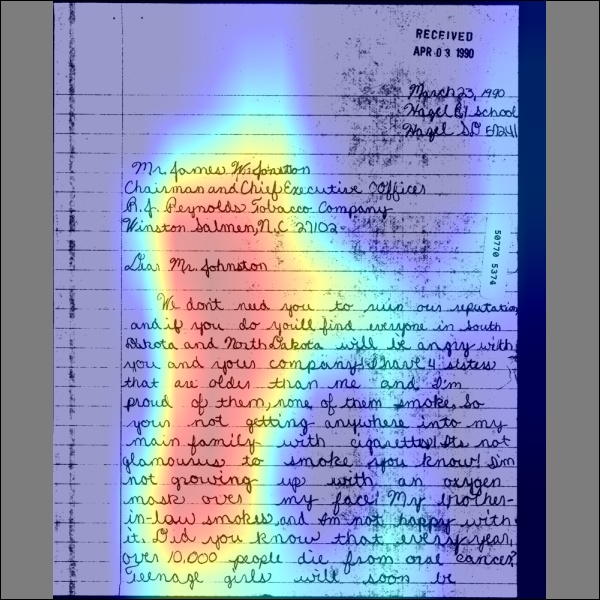 RECEIVED
APR 03 1990
March 23, 1990
Hazel Elem School
Hazel SD 57241
Mr. James W. Johnston
Chairman and Chief Executive Officer
R.J. Reynolds Tobacco Company
Winston Salmen, N.C. 27102
Dear Mr. Johnston
We don't need you to ruin our reputation
and if you do you'll find everyone in South
Dakota and North Dakota will be angry with
you and your company. I have 4 sisters
that are older than me and I'm
proud of them, none of them smoke. So
your not getting anywhere into my
main family with cigarettes! Its not
glamourus to smoke you know! I'm
not growing up with an oxygen
mask over my face! My brother-
in-law smokes and I'm not happy with
it. Did you know that every year,
over 10,000 people die from oral cancer?
Teenage girls will soon be
50770 5374